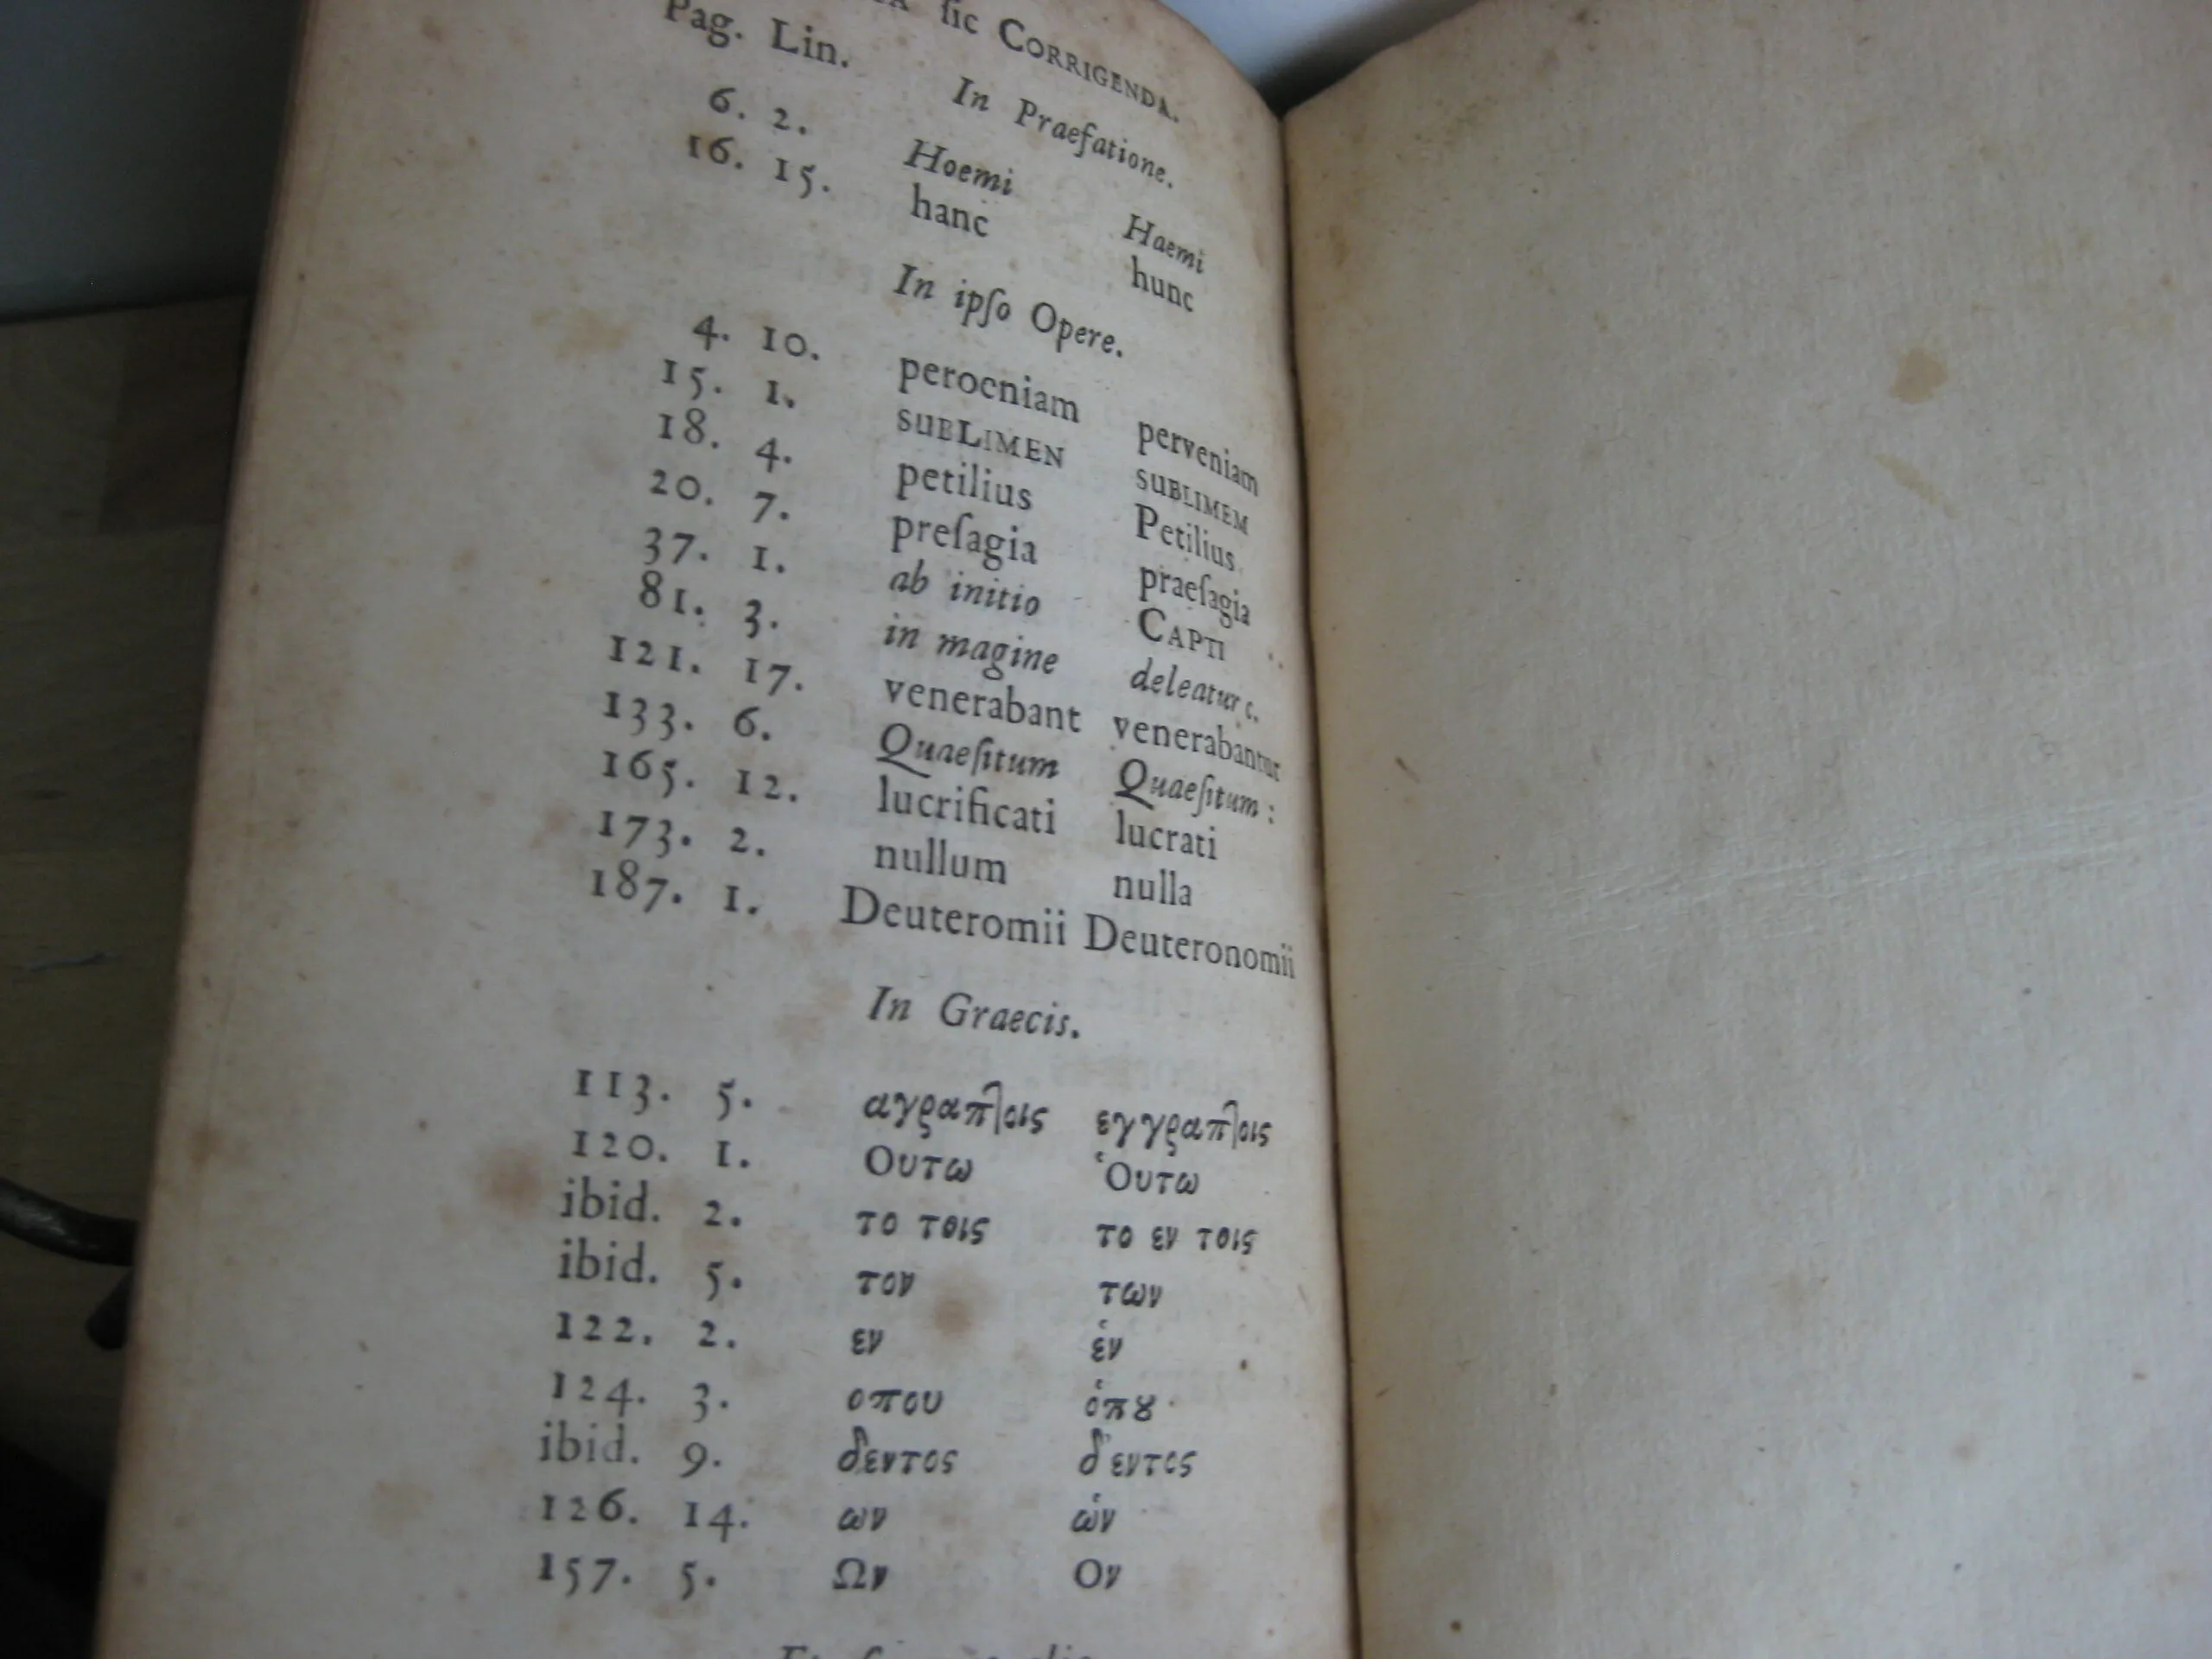 ſic CORRIGENDA.
Pag. Lin.
In Praefatione.
6. 2. Hoemi Haemi
16. 15. hanc hunc
In ipſo Opere.
4. 10. perocniam perveniam
15. 1. SUBLIMEN SUBLIMEM
18. 4. petilius Petilius
20. 7. preſagia praeſagia
37. 1. ab initio CAPTI
81. 3. in magine deleatur c.
121. 17. venerabant venerabantur
133. 6. Quaeſitum Quaeſitum :
165. 12. lucrificati lucrati
173. 2. nullum nulla
187. 1. Deuteromii Deuteronomii
In Graecis.
113. 5. αγραπτοις εγγραπτοις
120. 1. Ουτω Ὁυτω
ibid. 2. το τοις το εν τοις
ibid. 5. τον των
122. 2. εν ἑν
124. 3. οπου ὁπȣ
ibid. 9. δεντος δ'εντος
126. 14. ων ὡν
157. 5. Ων Ον